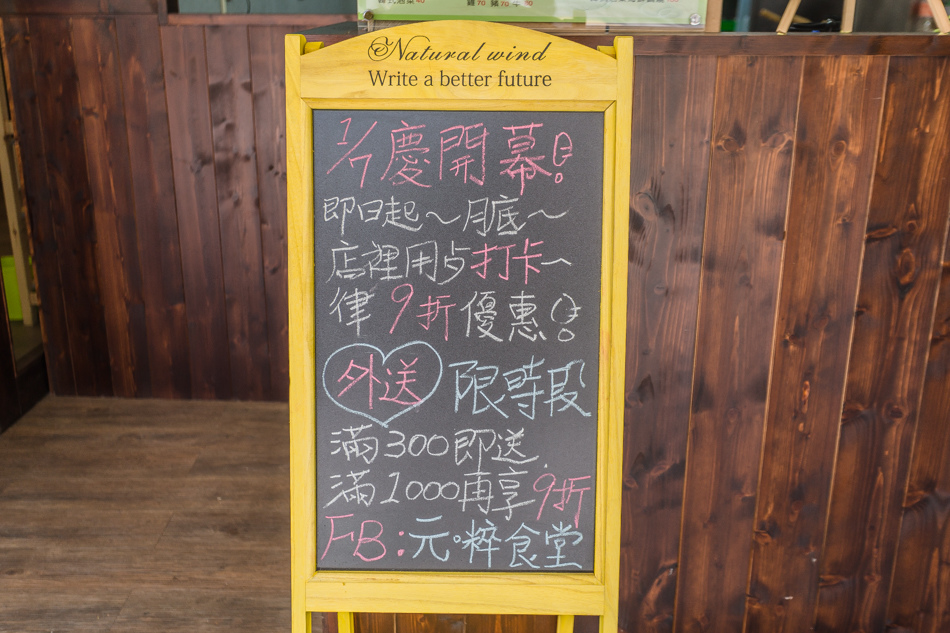 雞70 豬70 牛90
Natural wind
Write a better future
1/7慶開幕!
即日起~月底~
店裡用歺打卡一
律 9折優惠!
外送 限時段
滿300即送
滿1000再享9折
FB:元·粹食堂